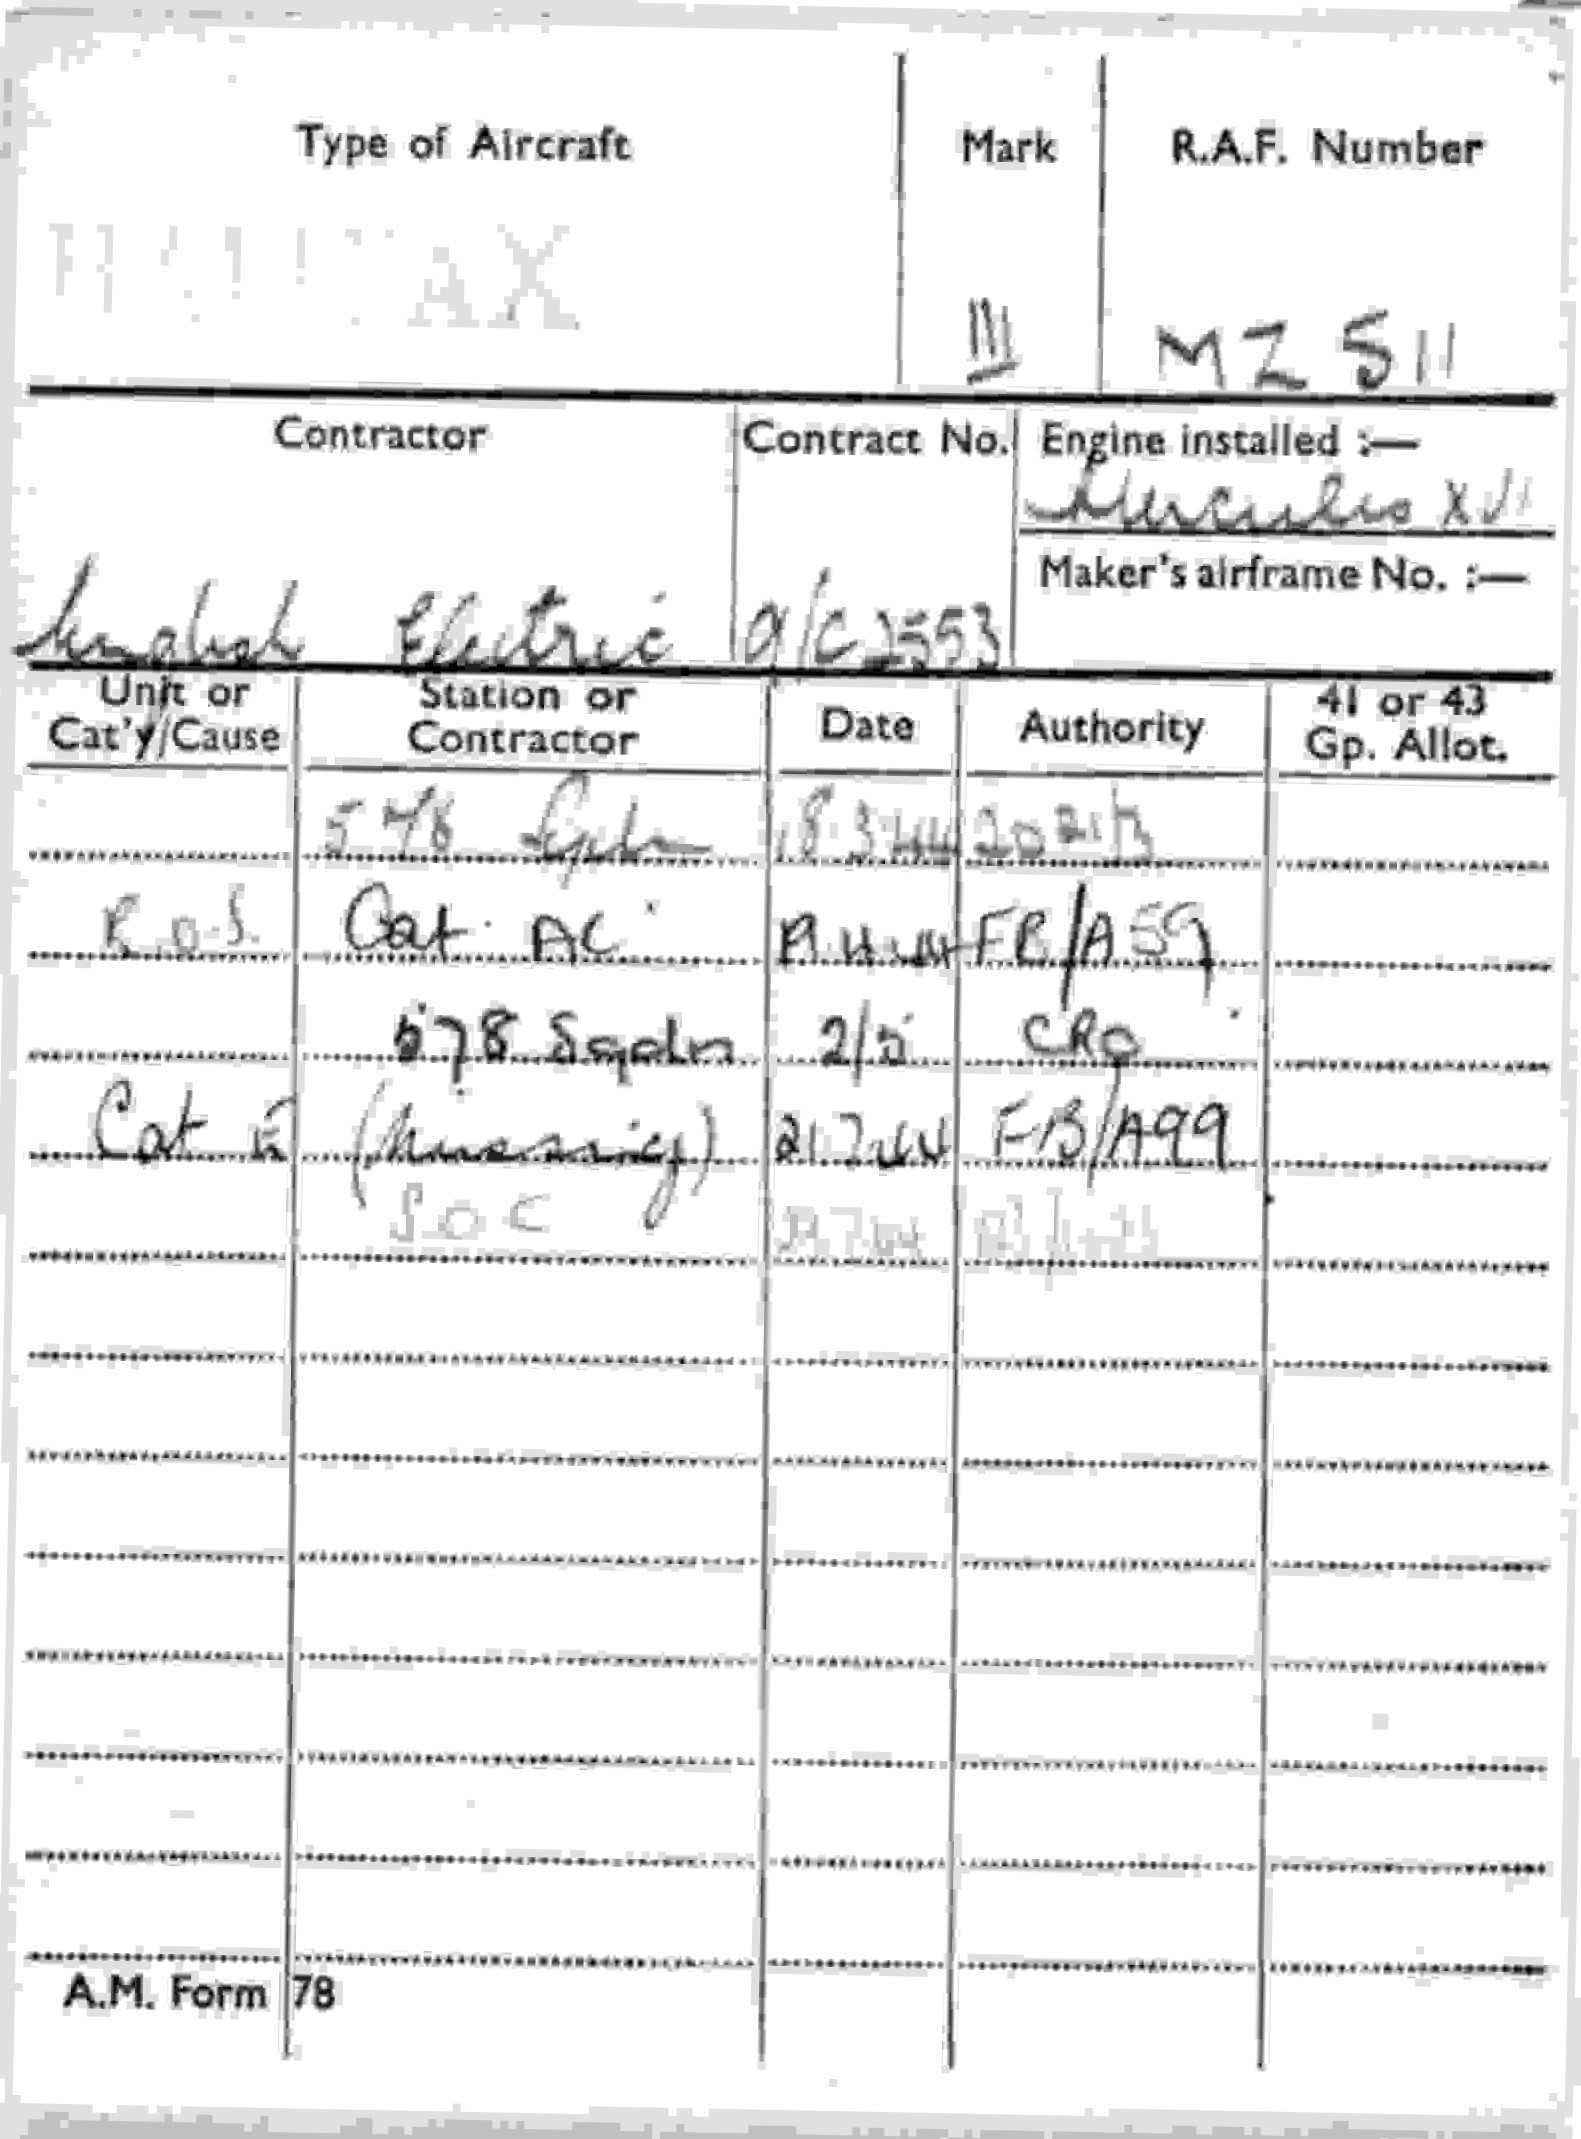 Type of Aircraft Mark R.A.F. Number
HALIFAX III MZ 511
Contractor Contract No. Engine installed :—
Hercules XVI
Maker's airframe No. :—
English Electric A/C 2553
Unit or Cat'y/Cause Station or Contractor Date Authority 41 or 43 Gp. Allot.
578 Sqdn 18 3 44
R.O.S. Cat AC FB/A59
578 Sqdn 2/5 CRO
Cat E (missing) 21 7 44 FB/A99
SOC
A.M. Form 78